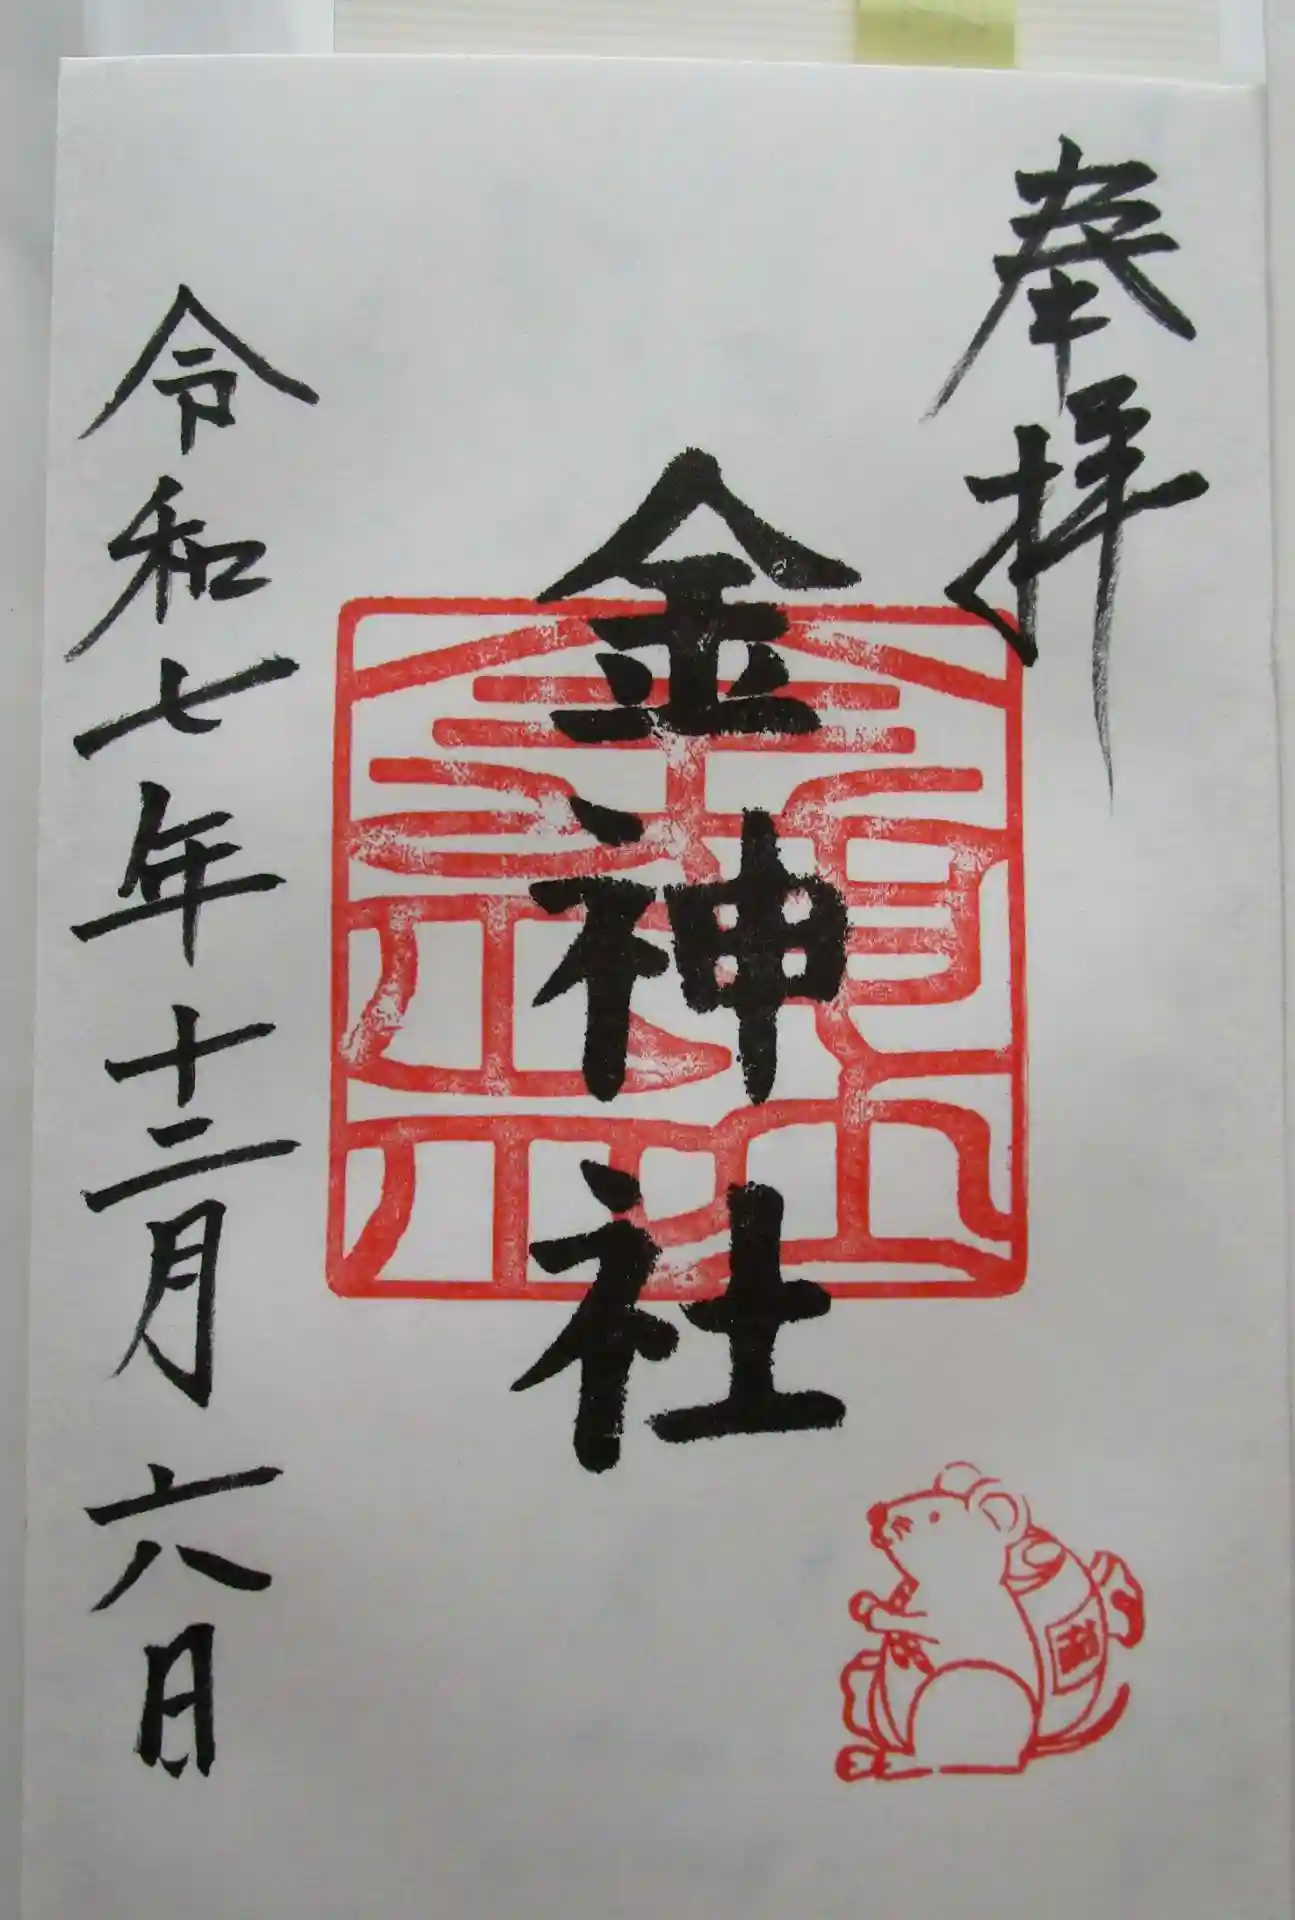 奉拝
金神社
令和七年十二月六日